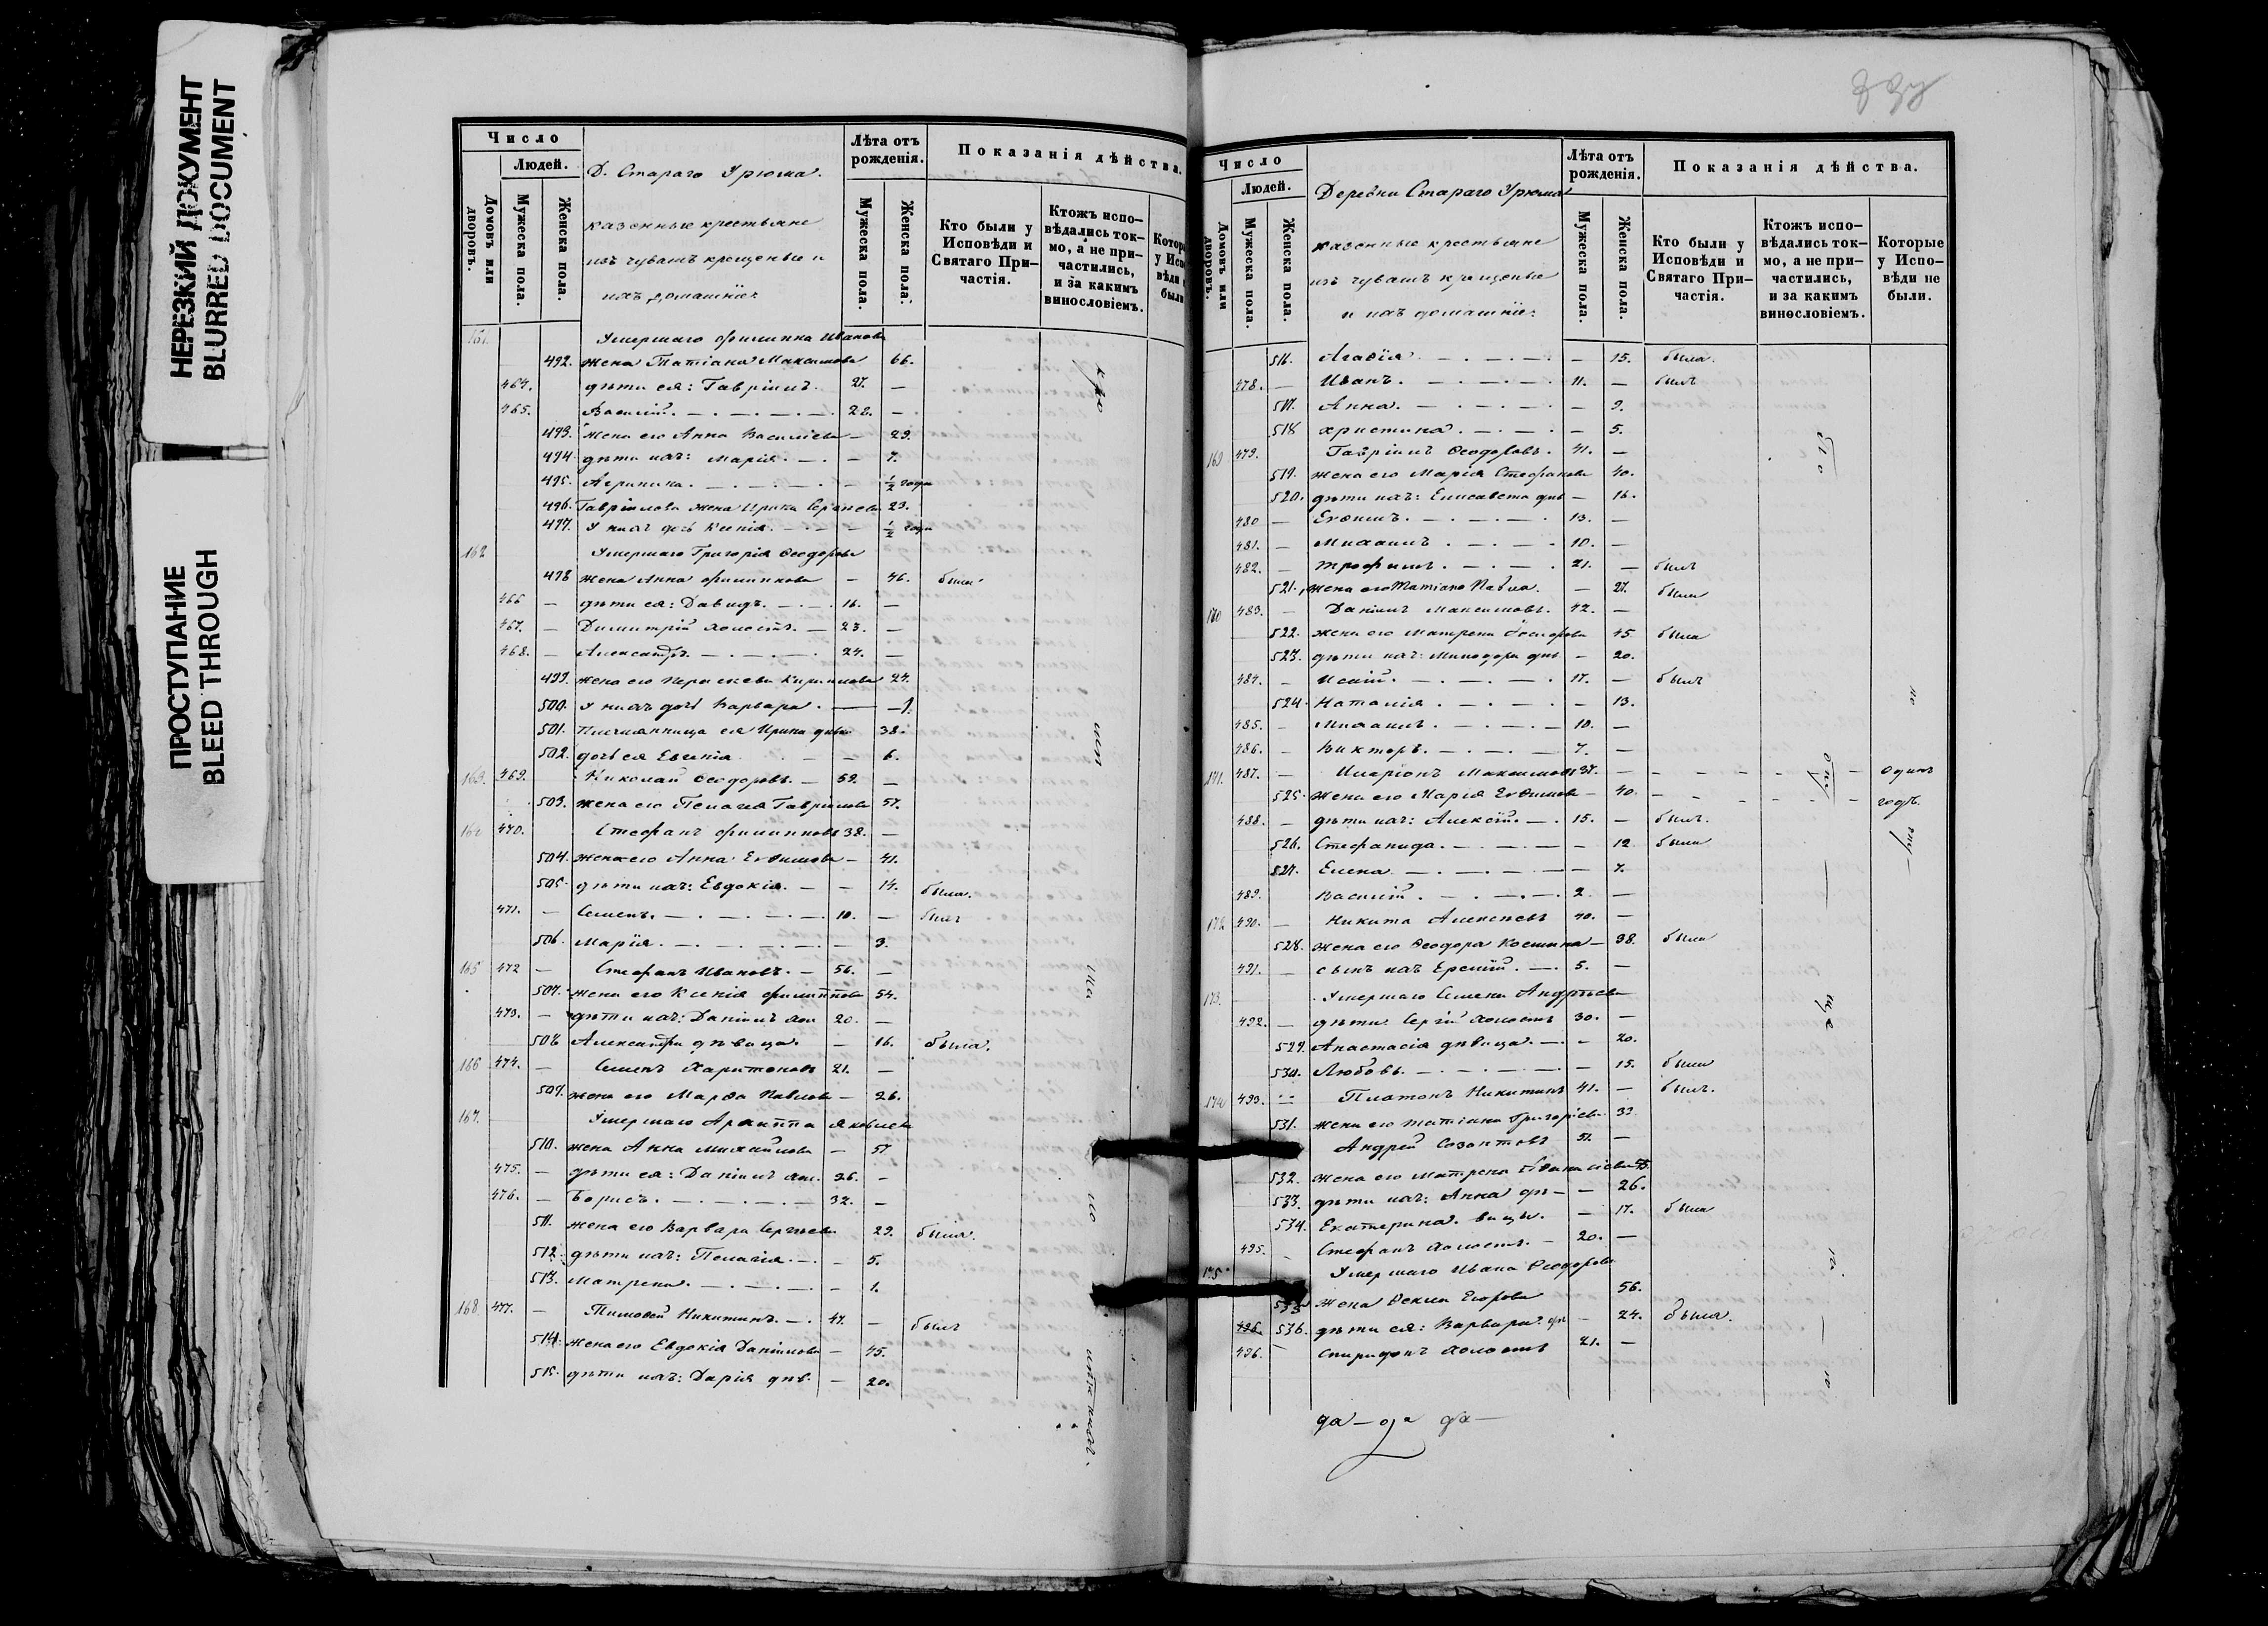 НЕРЕЗКИЙ ДОКУМЕНТ
BLURRED DOCUMENT
ПРОСТУПАНИЕ
BLEED THROUGH
Число
Людей.
Домовъ или дворовъ.
Мужеска пола.
Женска пола.
Д. Стараго Урюма.
казенные крестьяне
изъ чувашъ крещеные и
ихъ домашніе:
Лѣта отъ рожденія.
Мужеска пола.
Женска пола.
Показанія дѣйства.
Кто были у Исповѣди и Святаго Причастія.
Ктожъ исповѣдались токмо, а не причастились, и за какимъ винословіемъ.
161. Умершаго Филиппа Иванова
492. жена Татіана Максимова 66.
464. дѣти ея: Гавріилъ. 27. —
465. Василій. — . — . — 28. —
493. жена его Анна Василіева — 29.
494. дѣти ихъ: Марія. — . — 7.
495. Агрипина. — . — . — ½ года
496. Гавріилова жена Ирина Сергѣева 23.
497. У нихъ дочь Ксенія. — . — ½ года
162 Умершаго Григорія Ѳеодорова
498 жена Анна Филиппова — 46. была
466 — дѣти ея: Давидъ. — . — 16. —
467. — Димитрій холостъ. — 23. —
468. — Александръ. — . — . — 24. —
499. жена его Параскева Кириллова 24.
500. У нихъ дочь Варвара. — 1.
501. Племянница ея Ирина дѣв. 38.
502. дочь ея Евгенія — — 6.
163. 469. Николай Ѳеодоровъ. — 59. —
503. жена его Пелагія Гавріилова 57.
164 470. Стефанъ Филипповъ 38. —
504. жена его Анна Евѳимова — 41.
505. дѣти ихъ: Евдокія. — — 14. была.
471. — Семенъ. — . — . — . — 10. — былъ
506. Марія. — . — . — . — 3.
165 472 — Стефанъ Ивановъ. — 56. —
507. жена его Ксенія Филиппова 54.
473. — дѣти ихъ: Даніилъ хол 20. —
508 Александра дѣвица. — 16. была.
166 474. — Семенъ Харитоновъ 21. —
509. жена его Марѳа Павлова — 26.
167. Умершаго Архиппа Яковлева
510. жена Анна Михайлова — 57
475. — дѣти ея: Даніилъ хол. 26. —
476. — Борисъ. — . — . — . — 32. —
511. жена его Варвара Сергѣева 29. была.
512. дѣти ихъ: Пелагія. — . — 5.
513. Матрена. — . — . — 1.
168 477. — Тимоѳей Никитинъ. — . 47. — былъ
514. жена его Евдокія Даніилова — 45.
515. дѣти ихъ: Дарія дѣв. — 20.
Число
Людей.
Домовъ или дворовъ.
Мужеска пола.
Женска пола.
Деревни Стараго Урюма
казенные крестьяне
изъ чувашъ крещеные
и ихъ домашніе:
Лѣта отъ рожденія.
Мужеска пола.
Женска пола.
Показанія дѣйства.
Кто были у Исповѣди и Святаго Причастія.
Ктожъ исповѣдались токмо, а не причастились, и за какимъ винословіемъ.
Которые у Исповѣди не были.
516. Агаѳія. — . — . — — 15. была.
478. — Иванъ. — . — . — 11. — былъ
517. Анна. — . — . — — 9.
518 Христина. — . — . — 5.
169 479. Гавріилъ Ѳеодоровъ. 41. —
519. жена его Марія Стефанова 40.
520. дѣти ихъ: Елисавета дѣв — 16.
480 — Евѳимъ. — . — . — 13. —
481. — Михаилъ. — . — . 10. —
482. — Трофимъ. — . — . 21. — былъ
521. жена его Татіана Павл. — 27. была
170 483. — Даніилъ Максимовъ. 47. —
522. жена его Матрена 45 была
523. дѣти ихъ: Минодора дѣв — 20.
484. — Исаій. — . — . — 17. — былъ
524. Наталія. — . — . — 13.
485. — Михаилъ — . — . — 10. —
486. — Викторъ. — . — . — 7. —
171. 487. — Иларіонъ Максимовъ 37. — одинъ
525. жена его Марія Евѳимова — 40. годъ.
488. — дѣти ихъ: Алексій. — . 15. — былъ.
526. Стефанида. — . — . — 12 была
527. Елена. — . — . — 7.
489. Василій. — . — . — . 2 —
172 490. — Никита Алексѣевъ 40. —
528. жена его Ѳеодора Косьмина — 38. была
491. — сынъ ихъ Ермій. — . 5. —
173. Умершаго Семена Андреева
492. — дѣти Сергій холостъ 30. —
529. Анастасія дѣвица. — . — 20.
530. Любовь. — . — . — . — 15. была
174 493. Платонъ Никитинъ 41. — былъ.
531. жена его Татіана Григорьева 39
Андрей Созонтовъ 51. —
532. жена его Матрена Аѳанасіева 55.
533. дѣти ихъ: Анна дѣ— — 26.
534. Екатерина. вицы. — 17. была
495. — Стефанъ холостъ. — 20. —
175 Умершаго Ивана Ѳеодорова
535 жена Ѳекла Егорова 56.
496. 536. дѣти ея: Варвара дѣв — 24. была.
496. — Спиридонъ холостъ 21. —
да — да да —